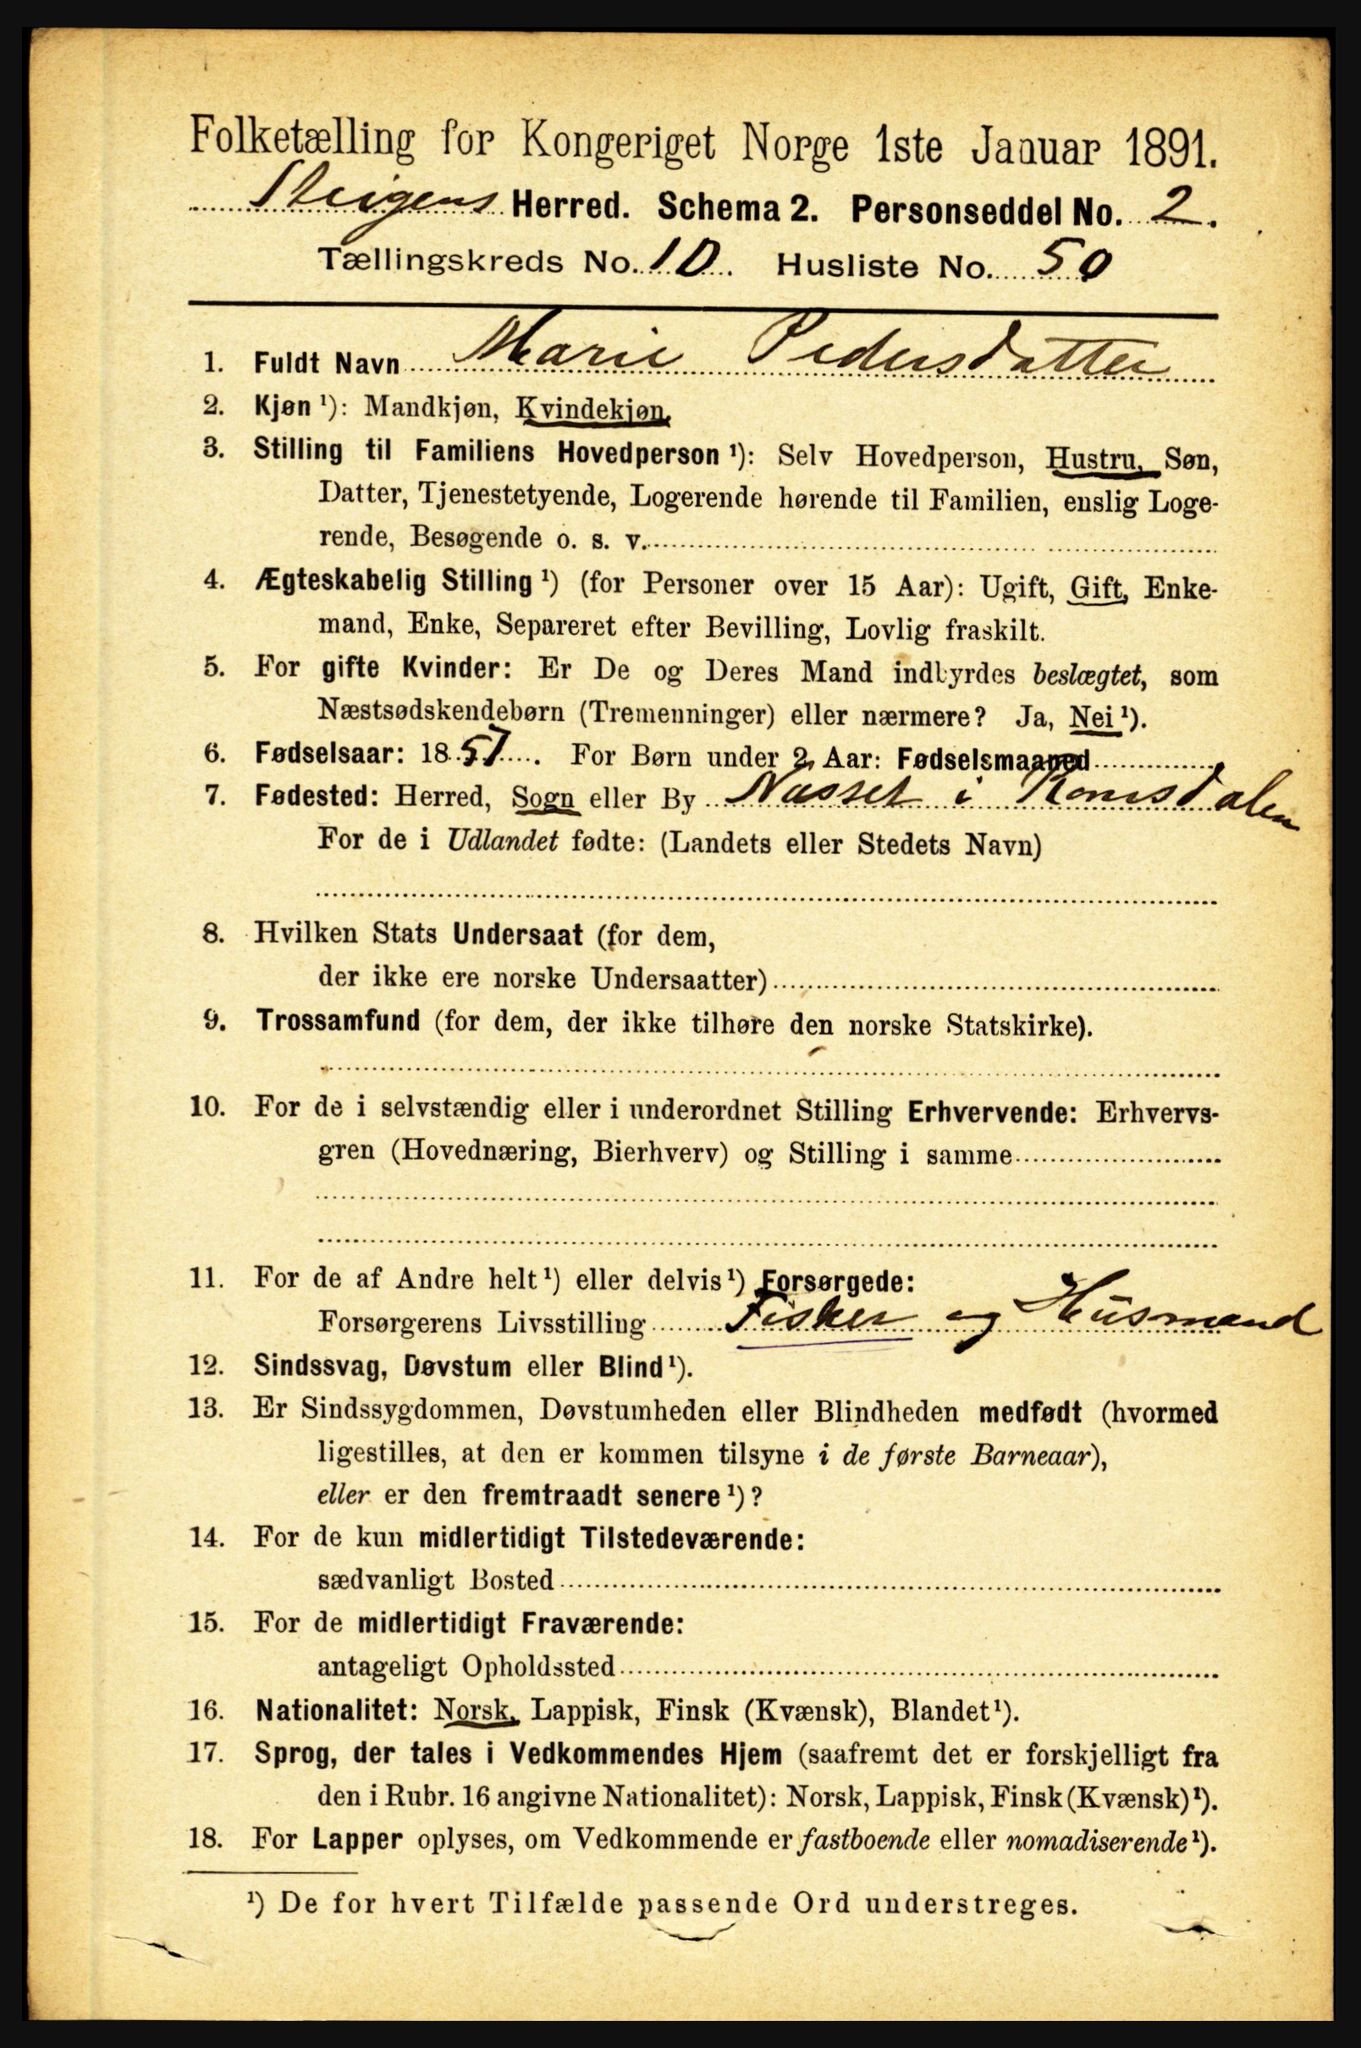 Folketælling for Kongeriget Norge 1ste Januar 1891.
Steigens Herred. Schema 2. Personseddel No. 2.
Tællingskreds No. 10. Husliste No. 50
1. Fuldt Navn Marie Pedersdatter
2. Kjøn ¹): Mandkjøn, Kvindekjøn.
3. Stilling til Familiens Hovedperson ¹): Selv Hovedperson, Hustru, Søn,
Datter, Tjenestetyende, Logerende hørende til Familien, enslig Loge-
rende, Besøgende o. s. v.
4. Ægteskabelig Stilling ¹) (for Personer over 15 Aar): Ugift, Gift, Enke-
mand, Enke, Separeret efter Bevilling, Lovlig fraskilt.
5. For gifte Kvinder: Er De og Deres Mand indbyrdes beslægtet, som
Næstsødskendebørn (Tremenninger) eller nærmere? Ja, Nei ¹).
6. Fødselsaar: 1857. For Børn under 2 Aar: Fødselsmaaned
7. Fødested: Herred, Sogn eller By Næsset i Romsdalen
For de i Udlandet fødte: (Landets eller Stedets Navn)
8. Hvilken Stats Undersaat (for dem,
der ikke ere norske Undersaatter)
9. Trossamfund (for dem, der ikke tilhøre den norske Statskirke).
10. For de i selvstændig eller i underordnet Stilling Erhvervende: Erhvervs-
gren (Hovednæring, Bierhverv) og Stilling i samme
11. For de af Andre helt ¹) eller delvis ¹) Forsørgede:
Forsørgerens Livsstilling Fisker og Husmand
12. Sindssvag, Døvstum eller Blind ¹).
13. Er Sindssygdommen, Døvstumheden eller Blindheden medfødt (hvormed
ligestilles, at den er kommen tilsyne i de første Barneaar),
eller er den fremtraadt senere ¹)?
14. For de kun midlertidigt Tilstedeværende:
sædvanligt Bosted
15. For de midlertidigt Fraværende:
antageligt Opholdssted
16. Nationalitet: Norsk, Lappisk, Finsk (Kvænsk), Blandet ¹).
17. Sprog, der tales i Vedkommendes Hjem (saafremt det er forskjelligt fra
den i Rubr. 16 angivne Nationalitet): Norsk, Lappisk, Finsk (Kvænsk) ¹).
18. For Lapper oplyses, om Vedkommende er fastboende eller nomadiserende ¹).
¹) De for hvert Tilfælde passende Ord understreges.